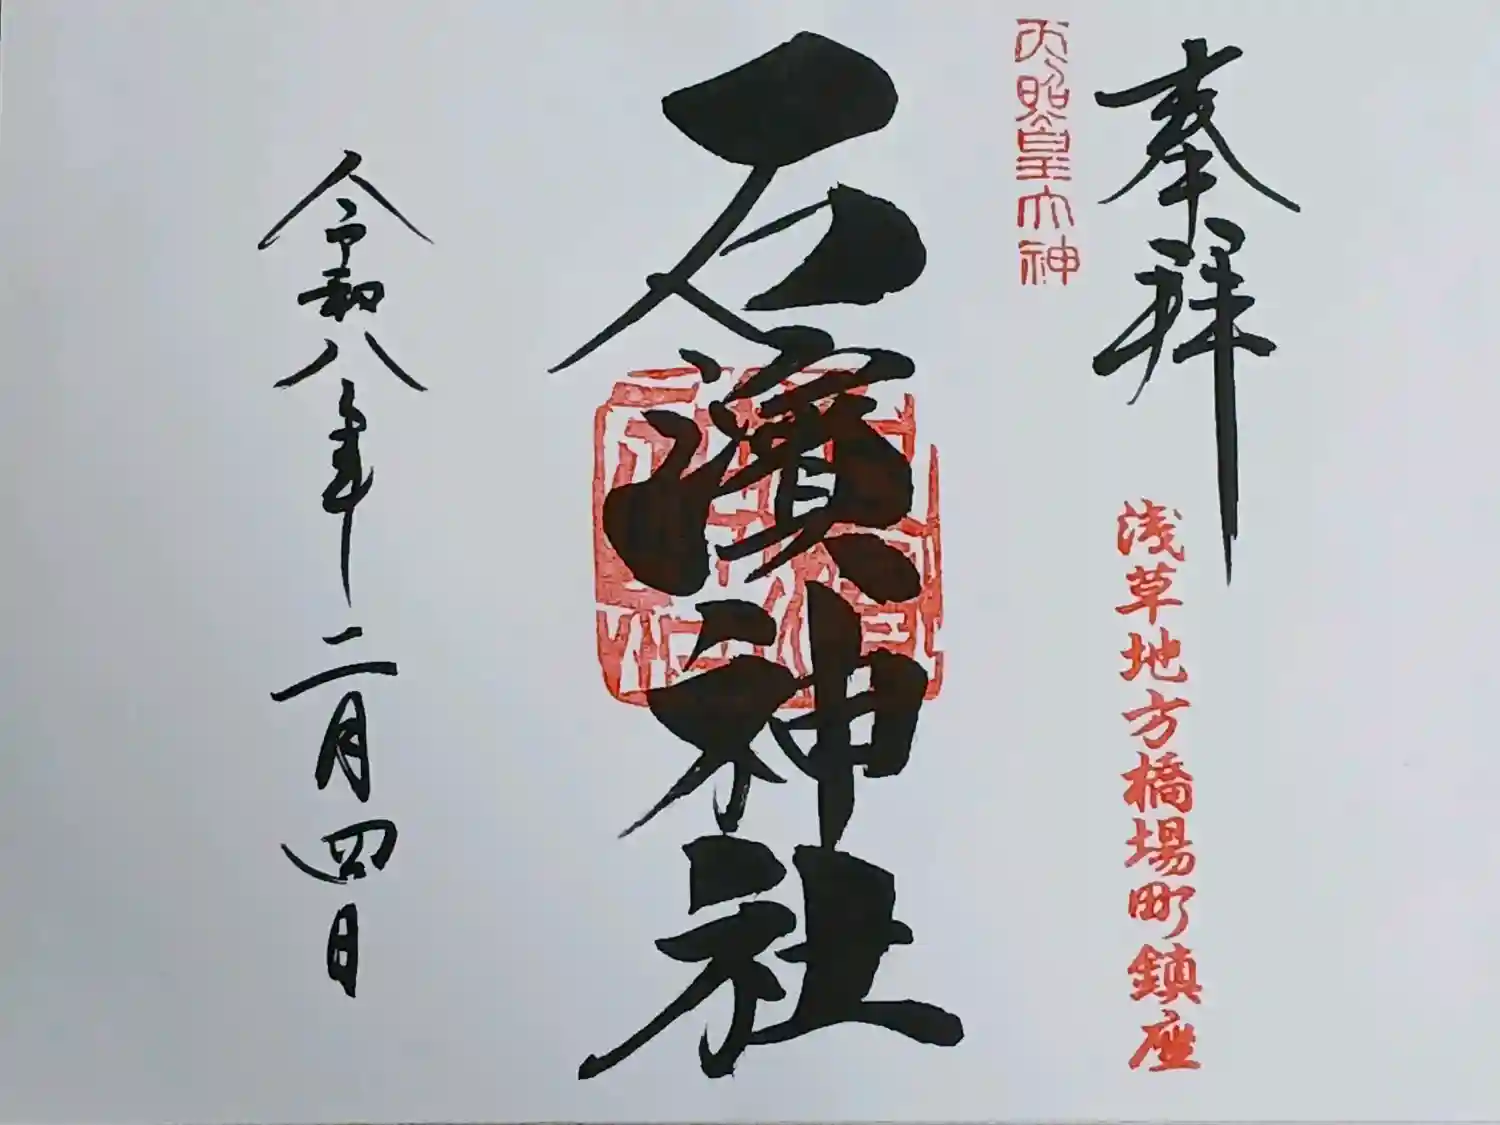 奉拝
浅草地方橋場町鎮座
天照皇大神
石濱神社
令和八年二月四日